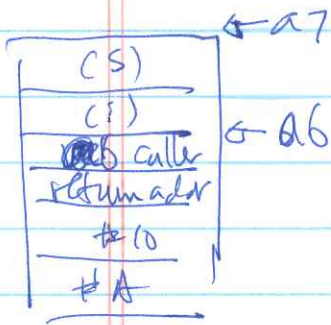 ← a7
(S)
(i) ← a6
caller
return addr
# 10
# A